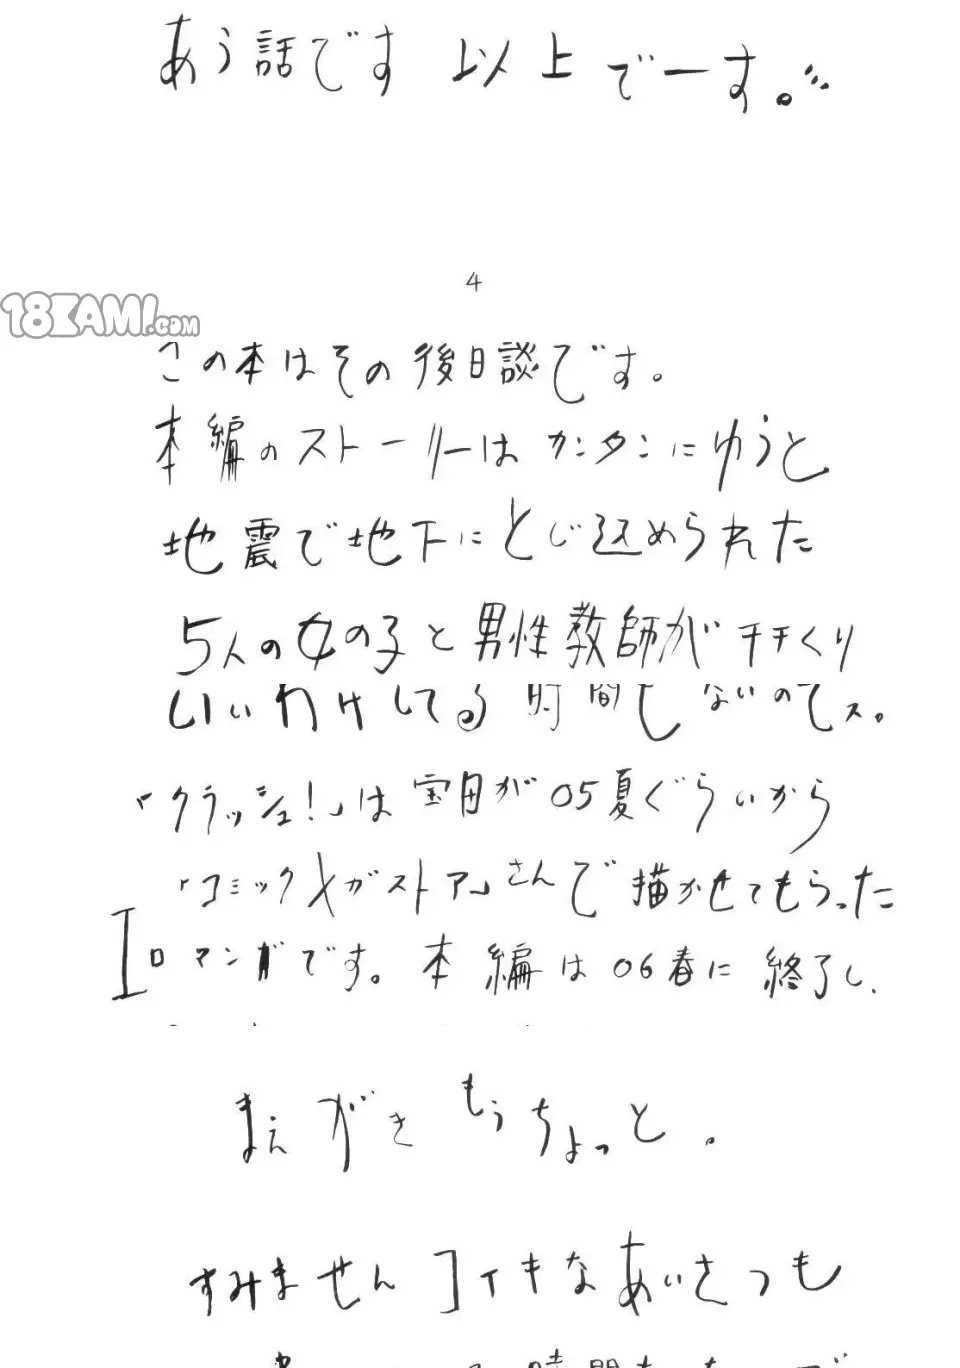 あう話です 以上でーす。
4
18KAMI.com
この本はその後日談です。
本編のストーリーはカンタンにゆうと
地震で地下にとじ込められた
5人の女の子と男性教師がチチくり
いいわけしてる時間もないのでス。
「クラッシュ!」は宝田が05夏ぐらいから
「コミックメガストア」さんで描かせてもらった
エロマンガです。本編は06春に終了し、
まえがきもうちょっと。
すみません コイキなあいさつも